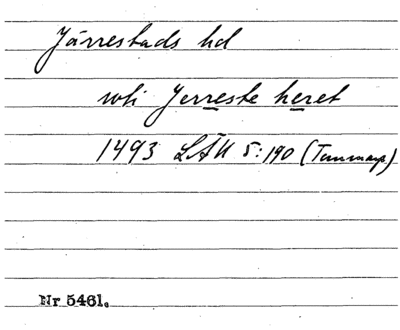 Järrestads hd
wti Jerreste heret
1493 LÄU 5:190 (Tummarp)
Nr 5461.